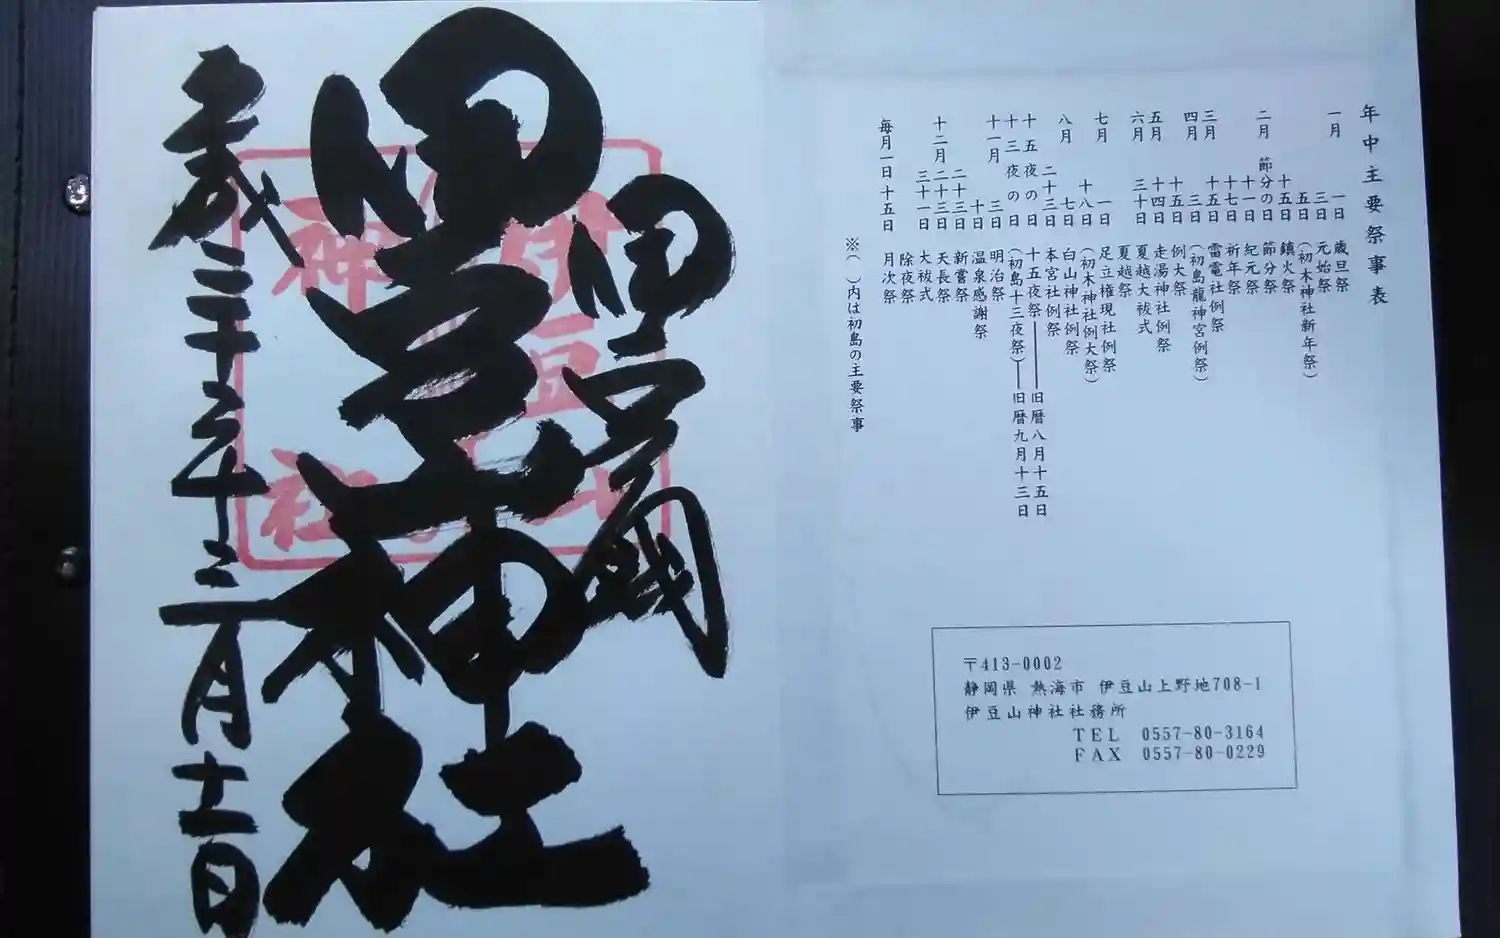 年中主要祭事表
一月 一日 歳旦祭
三日 元始祭
五日 (初木神社新年祭)
十五日 鎮火祭
二月 節分の日 節分祭
十一日 紀元祭
十七日 祈年祭
三月 十五日 雷電社例祭
四月 三日 (初島龍神宮例祭)
十五日 例大祭
五月 十四日 走湯神社例祭
六月 三十日 夏越大祓式
夏越祭
七月 一日 足立権現社例祭
十八日 (初木神社例大祭)
八月 七日 白山神社例祭
二十三日 本宮社例祭
十五夜の日 十五夜祭――旧暦八月十五日
十三夜の日 (初島十三夜祭)――旧暦九月十三日
十一月 三日 明治祭
十日 温泉感謝祭
二十三日 新嘗祭
十二月 二十三日 天長祭
三十一日 大祓式
除夜祭
毎月一日十五日 月次祭
※( )内は初島の主要祭事
〒413-0002
静岡県 熱海市 伊豆山上野地708-1
伊豆山神社社務所
TEL 0557-80-3164
FAX 0557-80-0229
伊豆國
伊豆山神社
伊豆山
神社
平成二十 年十二月十一日